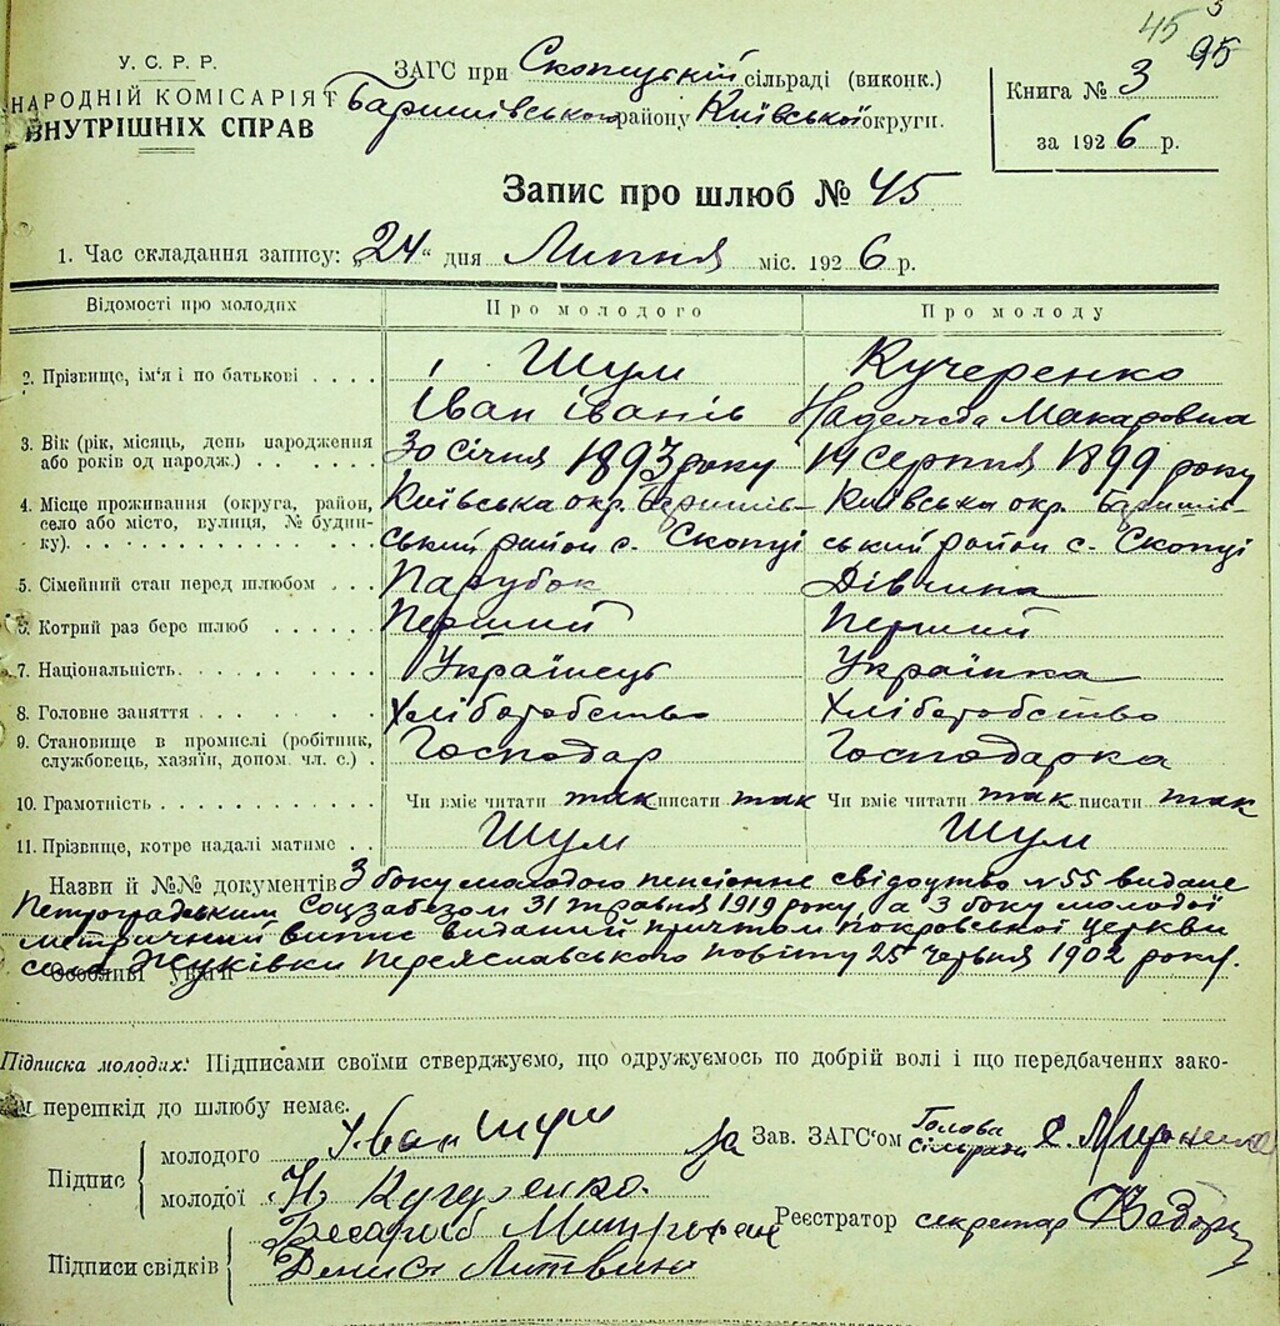 45 95
У. С. Р. Р.
НАРОДНІЙ КОМІСАРІЯТ
ВНУТРІШНІХ СПРАВ
ЗАГС при Скопецькій сільраді (виконк.)
Баришівського району Київської округи.
Книга № 3
за 1926 р.
Запис про шлюб № 45
1. Час складання запису: „24“ дня Липня міс. 1926 р.
Відомості про молодих Про молодого Про молоду
2. Прізвище, ім'я і по батькові . . . . Шум Кучеренко
Іван Іванів Надежда Макаровна
3. Вік (рік, місяць, день народження або років од народж.) . . . . . . 30 Січня 1893 року 14 Серпня 1899 року
4. Місце проживання (округа, район, село або місто, вулиця, № будинку). Київська окр. Баришів- Київська окр. Баришів-
ський район с. Скопці ський район с. Скопці
5. Сімейний стан перед шлюбом . . . Парубок Дівчина
6. Котрий раз бере шлюб . . . . . . Перший Перший
7. Національність. . . . . . . . . . Українець Українка
8. Головне заняття . . . . . . . . Хліборобство Хліборобство
9. Становище в промислі (робітник, службовець, хазяїн, допом. чл. с.) . Господар Господарка
10. Грамотність . . . . . . . . . . . . Чи вміє читати так писати так Чи вміє читати так писати так
11. Прізвище, котре надалі матиме . . Шум Шум
Назви й №№ документів З боку молодого пенсіонне свідоцтво №55 видане
Петроградським Соцзабезом 31 травня 1919 року, а з боку молодої
метричний випис виданий причтом покровської церкви
села Жуківки Переяславського повіту 25 червня 1902 року.
Особливі уваги
Підписка молодих: Підписами своїми стверджуємо, що одружуємось по добрій волі і що передбачених зако-
ном перешкід до шлюбу немає.
Підпис молодого Іван Шум
молодої Н Кучеренко.
За Зав. ЗАГС'ом Голова Сільради
Реєстратор секретар
Підписи свідків
Денис Литвин